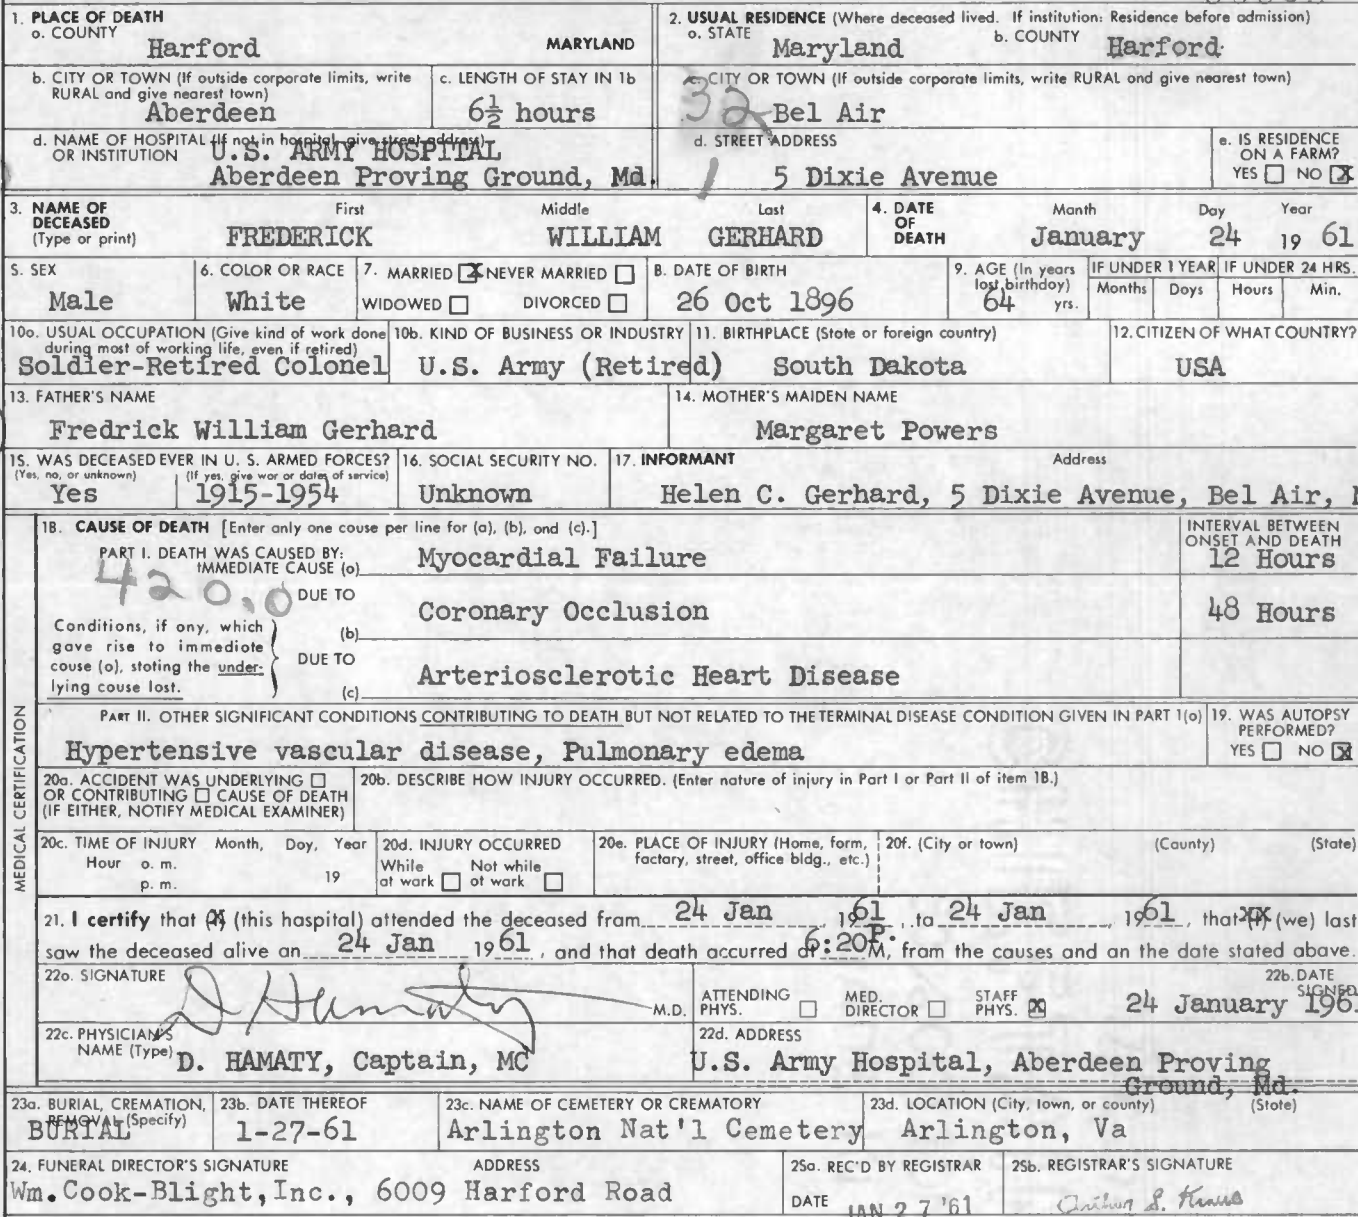 1. PLACE OF DEATH
a. COUNTY
Harford MARYLAND
2. USUAL RESIDENCE (Where deceased lived. If institution: Residence before admission)
a. STATE b. COUNTY
Maryland Harford
b. CITY OR TOWN (If outside corporate limits, write
RURAL and give nearest town)
Aberdeen
c. LENGTH OF STAY IN 1b
6½ hours
CITY OR TOWN (If outside corporate limits, write RURAL and give nearest town)
32 Bel Air
d. NAME OF HOSPITAL (If not in hospital, give street address)
OR INSTITUTION U.S. ARMY HOSPITAL
Aberdeen Proving Ground, Md.
d. STREET ADDRESS
5 Dixie Avenue
e. IS RESIDENCE
ON A FARM?
YES NO X
3. NAME OF
DECEASED
(Type or print)
First Middle Last
FREDERICK WILLIAM GERHARD
4. DATE
OF
DEATH
Month Day Year
January 24 19 61
5. SEX
Male
6. COLOR OR RACE
White
7. MARRIED X NEVER MARRIED
WIDOWED DIVORCED
8. DATE OF BIRTH
26 Oct 1896
9. AGE (In years
last birthday)
64 yrs.
IF UNDER 1 YEAR
Months Days
IF UNDER 24 HRS.
Hours Min.
10a. USUAL OCCUPATION (Give kind of work done
during most of working life, even if retired)
Soldier-Retired Colonel
10b. KIND OF BUSINESS OR INDUSTRY
U.S. Army (Retired)
11. BIRTHPLACE (State or foreign country)
South Dakota
12. CITIZEN OF WHAT COUNTRY?
USA
13. FATHER'S NAME
Fredrick William Gerhard
14. MOTHER'S MAIDEN NAME
Margaret Powers
15. WAS DECEASED EVER IN U. S. ARMED FORCES?
(Yes, no, or unknown) (If yes, give war or dates of service)
Yes 1915-1954
16. SOCIAL SECURITY NO.
Unknown
17. INFORMANT Address
Helen C. Gerhard, 5 Dixie Avenue, Bel Air,
MEDICAL CERTIFICATION
18. CAUSE OF DEATH [Enter only one cause per line for (a), (b), and (c).]
INTERVAL BETWEEN
ONSET AND DEATH
PART I. DEATH WAS CAUSED BY:
IMMEDIATE CAUSE (a) Myocardial Failure 12 Hours
420.0 DUE TO
(b) Coronary Occlusion 48 Hours
Conditions, if any, which
gave rise to immediate
cause (a), stating the under-
lying cause last.
DUE TO
(c) Arteriosclerotic Heart Disease
PART II. OTHER SIGNIFICANT CONDITIONS CONTRIBUTING TO DEATH BUT NOT RELATED TO THE TERMINAL DISEASE CONDITION GIVEN IN PART 1(a)
Hypertensive vascular disease, Pulmonary edema
19. WAS AUTOPSY
PERFORMED?
YES NO X
20a. ACCIDENT WAS UNDERLYING
OR CONTRIBUTING CAUSE OF DEATH
(IF EITHER, NOTIFY MEDICAL EXAMINER)
20b. DESCRIBE HOW INJURY OCCURRED. (Enter nature of injury in Part I or Part II of item 18.)
20c. TIME OF INJURY Month, Day, Year
Hour a. m.
p. m. 19
20d. INJURY OCCURRED
While at work Not while at work
20e. PLACE OF INJURY (Home, farm,
factory, street, office bldg., etc.)
20f. (City or town) (County) (State)
21. I certify that (I) (this hospital) attended the deceased from 24 Jan 1961, to 24 Jan, 1961, that (I) (we) last
saw the deceased alive on 24 Jan 1961, and that death occurred at 6:20P.M, from the causes and on the date stated above.
22a. SIGNATURE
D Hamaty M.D.
ATTENDING PHYS. MED. DIRECTOR STAFF PHYS. X
22b. DATE
SIGNED
24 January 196
22c. PHYSICIAN'S
NAME (Type) D. HAMATY, Captain, MC
22d. ADDRESS
U.S. Army Hospital, Aberdeen Proving
Ground, Md.
23a. BURIAL, CREMATION,
REMOVAL (Specify)
BURIAL
23b. DATE THEREOF
1-27-61
23c. NAME OF CEMETERY OR CREMATORY
Arlington Nat'l Cemetery
23d. LOCATION (City, town, or county) (State)
Arlington, Va
24. FUNERAL DIRECTOR'S SIGNATURE ADDRESS
Wm. Cook-Blight, Inc., 6009 Harford Road
25a. REC'D BY REGISTRAR
DATE JAN 27 '61
25b. REGISTRAR'S SIGNATURE
Arthur S. Kraus